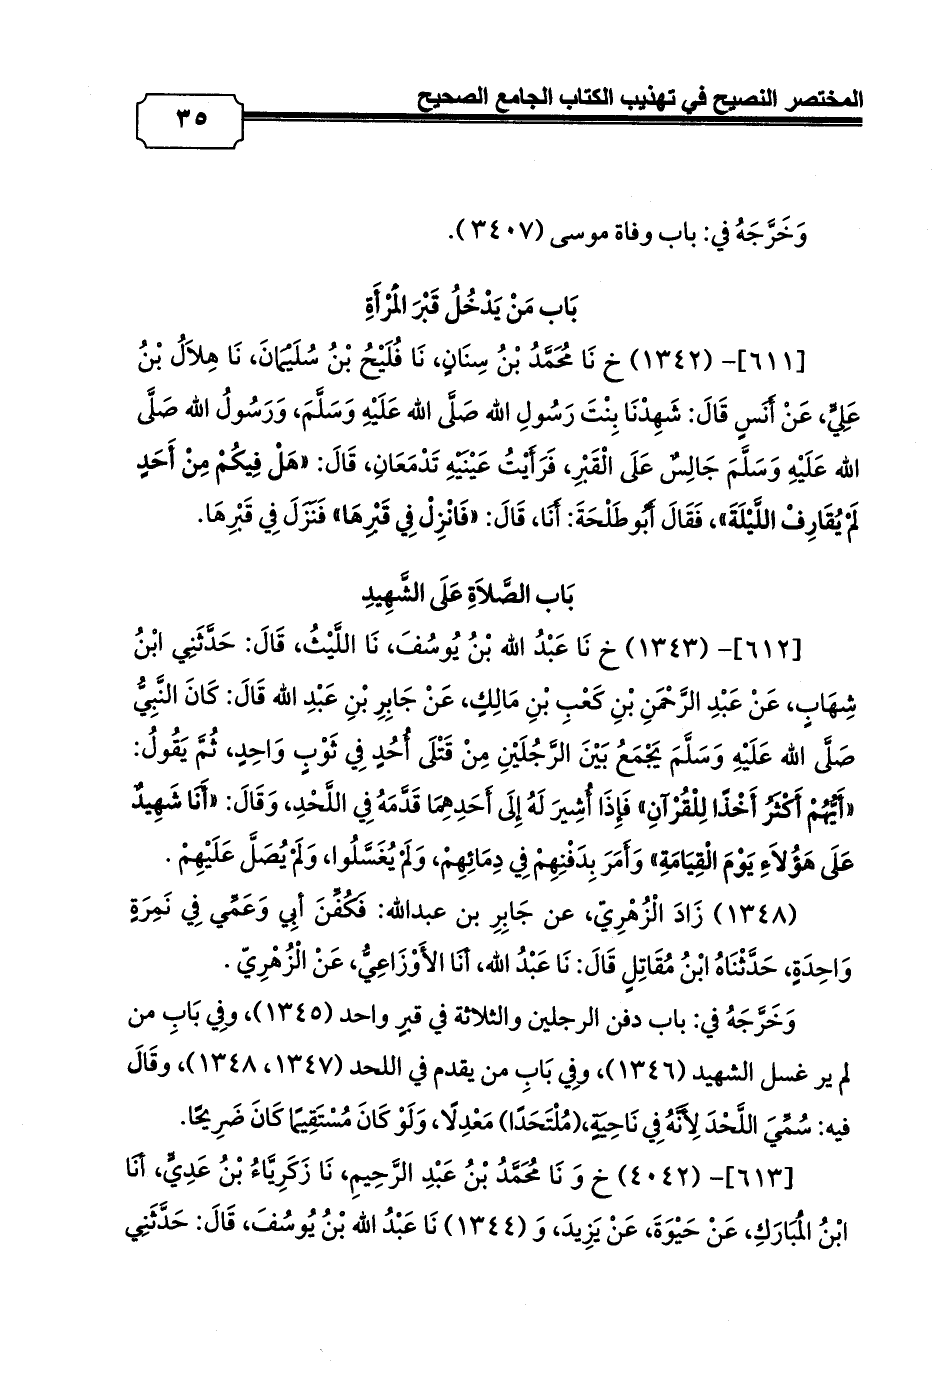 المختصر النصيح في تهذيب الكتاب الجامع الصحيح
٣٥
وَخَرَّجَهُ في: باب وفاة موسى (٣٤٠٧).
بَاب مَنْ يَدْخُلُ قَبْرَ الْمَرْأَةِ
[٦١١]- (١٣٤٢) خ نَا مُحَمَّدُ بْنُ سِنَانٍ، نَا فُلَيْحُ بْنُ سُلَيْمَانَ، نَا هِلاَلُ بْنُ
عَلِيٍّ، عَنْ أَنَسٍ قَالَ: شَهِدْنَا بِنْتَ رَسُولِ الله صَلَّى الله عَلَيْهِ وَسَلَّمَ، وَرَسُولُ الله صَلَّى
الله عَلَيْهِ وَسَلَّمَ جَالِسٌ عَلَى الْقَبْرِ، فَرَأَيْتُ عَيْنَيْهِ تَدْمَعَانِ، قَالَ: «هَلْ فِيكُمْ مِنْ أَحَدٍ
لَمْ يُقَارِفْ اللَّيْلَةَ»، فَقَالَ أَبُو طَلْحَةَ: أَنَا، قَالَ: «فَانْزِلْ فِي قَبْرِهَا» فَنَزَلَ فِي قَبْرِهَا.
بَاب الصَّلاَةِ عَلَى الشَّهِيدِ
[٦١٢]- (١٣٤٣) خ نَا عَبْدُ الله بْنُ يُوسُفَ، نَا اللَّيْثُ، قَالَ: حَدَّثَنِي ابْنُ
شِهَابٍ، عَنْ عَبْدِ الرَّحْمَنِ بْنِ كَعْبِ بْنِ مَالِكٍ، عَنْ جَابِرِ بْنِ عَبْدِ الله قَالَ: كَانَ النَّبِيُّ
صَلَّى الله عَلَيْهِ وَسَلَّمَ يَجْمَعُ بَيْنَ الرَّجُلَيْنِ مِنْ قَتْلَى أُحُدٍ فِي ثَوْبٍ وَاحِدٍ، ثُمَّ يَقُولُ:
«أَيُّهُمْ أَكْثَرُ أَخْذًا لِلْقُرْآنِ» فَإِذَا أُشِيرَ لَهُ إِلَى أَحَدِهِمَا قَدَّمَهُ فِي اللَّحْدِ، وَقَالَ: «أَنَا شَهِيدٌ
عَلَى هَؤُلاَءِ يَوْمَ الْقِيَامَةِ» وَأَمَرَ بِدَفْنِهِمْ فِي دِمَائِهِمْ، وَلَمْ يُغَسَّلُوا، وَلَمْ يُصَلَّ عَلَيْهِمْ.
(١٣٤٨) زَادَ الْزُهْرِيّ، عن جَابِرِ بن عبدالله: فَكُفِّنَ أَبِي وَعَمِّي فِي نَمِرَةٍ
وَاحِدَةٍ، حَدَّثْنَاهُ ابْنُ مُقَاتِلٍ قَالَ: نَا عَبْدُ الله، أَنَا الأَوْزَاعِيُّ، عَنْ الْزُهْرِيّ.
وَخَرَّجَهُ في: باب دفن الرجلين والثلاثة في قبرٍ واحد (١٣٤٥)، وفِي بَابِ من
لم ير غسل الشهيد (١٣٤٦)، وفي بَابِ من يقدم في اللحد (١٣٤٧، ١٣٤٨)، وقَالَ
فيه: سُمِّيَ اللَّحْدَ لِأَنَّهُ فِي نَاحِيَةٍ، (مُلْتَحَدًا) مَعْدِلًا، وَلَوْ كَانَ مُسْتَقِيمًا كَانَ ضَرِيحًا.
[٦١٣]- (٤٠٤٢) خ وَ نَا مُحَمَّدُ بْنُ عَبْدِ الرَّحِيمِ، نَا زَكَرِيَّاءُ بْنُ عَدِيٍّ، أَنَا
ابْنُ الْمُبَارَكِ، عَنْ حَيْوَةَ، عَنْ يَزِيدَ، وَ (١٣٤٤) نَا عَبْدُ الله بْنُ يُوسُفَ، قَالَ: حَدَّثَنِي